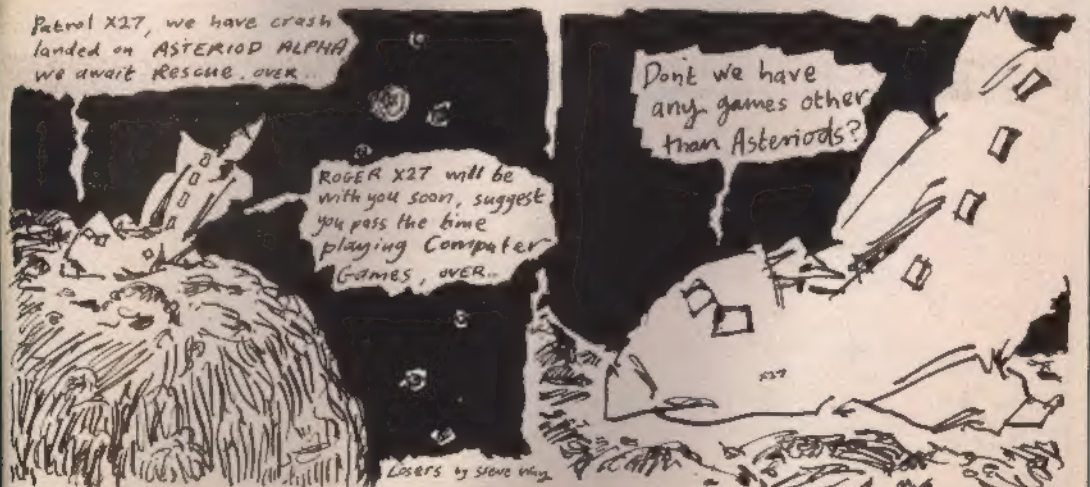 Patrol X27, we have crash
landed on ASTERIOD ALPHA
we await Rescue, over...
ROGER X27 will be
with you soon, suggest
you pass the time
playing Computer
Games, OVER...
Don't we have
any games other
than Asteriods?
X27
Losers by Steve Way